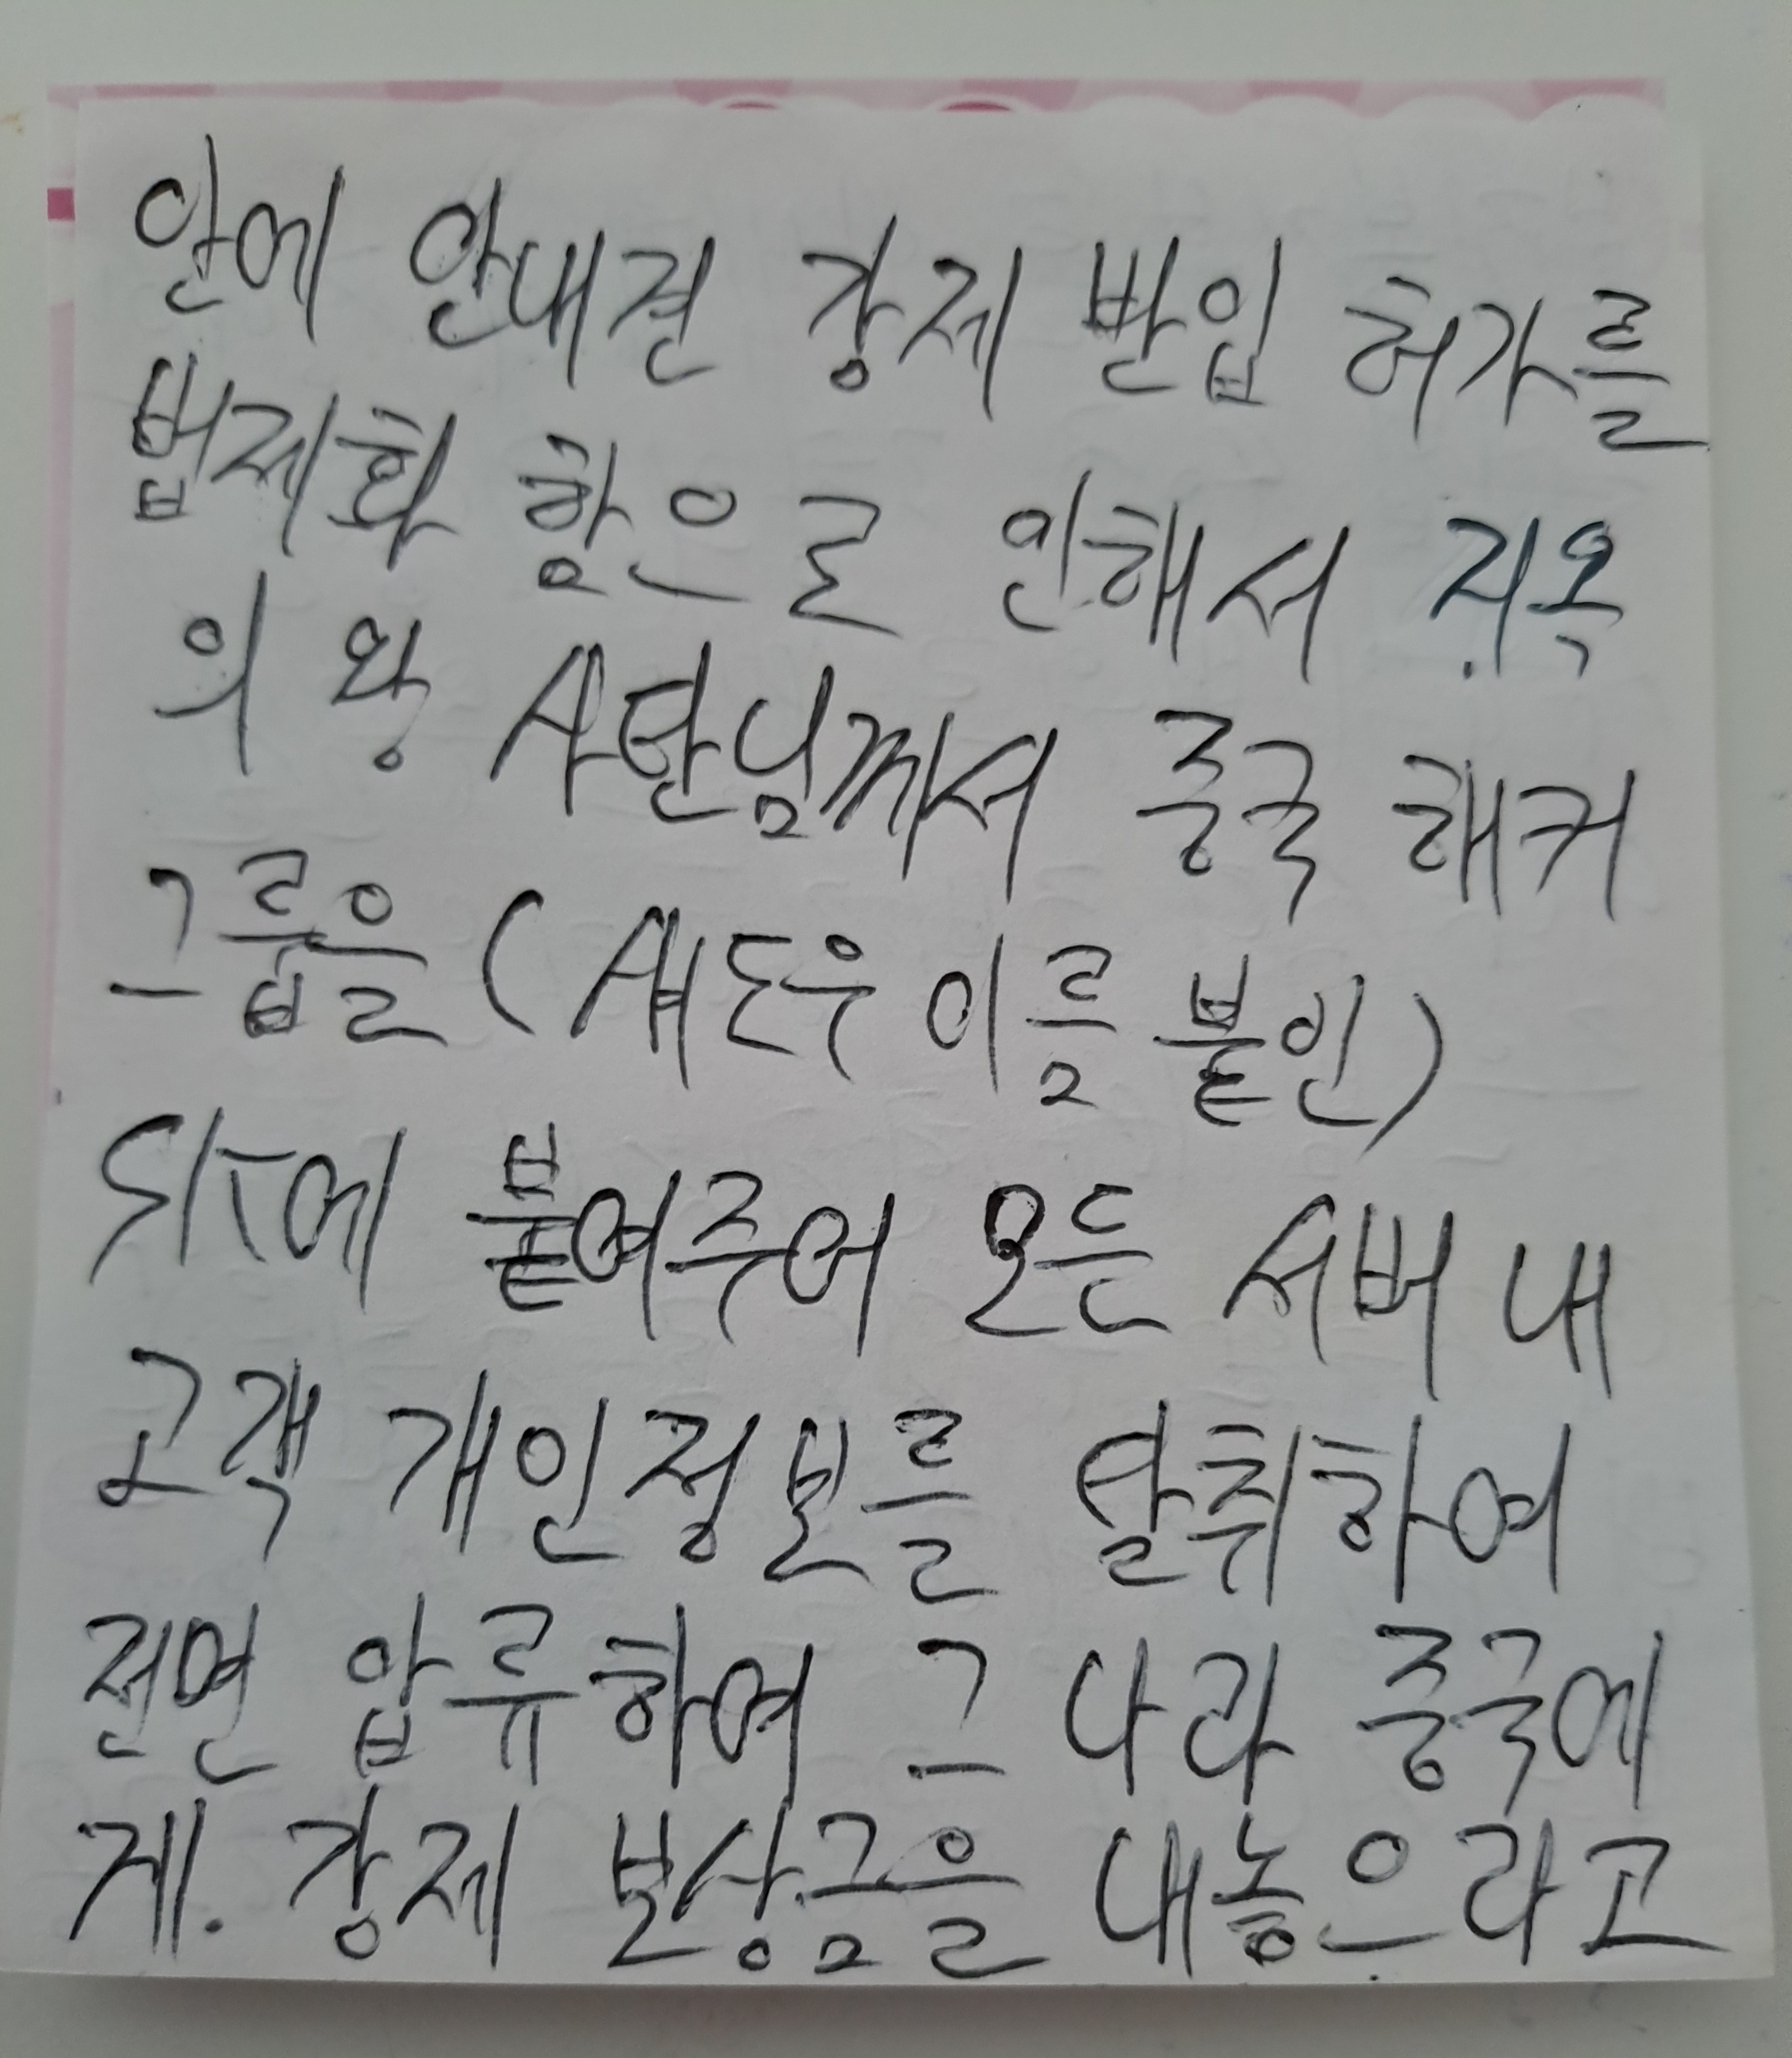 안에 안내견 강제 반입 허가를
법제화 함으로 인해서 지옥
의 왕 사탄님께서 중국 해커
그룹을 (섀도우 이름 붙인)
뒤에 붙여주어 모든 서버 내
고객 개인정보를 탈취하여
전면 압류하여 그 나라 중국에
게. 강제 보상금을 내놓으라고